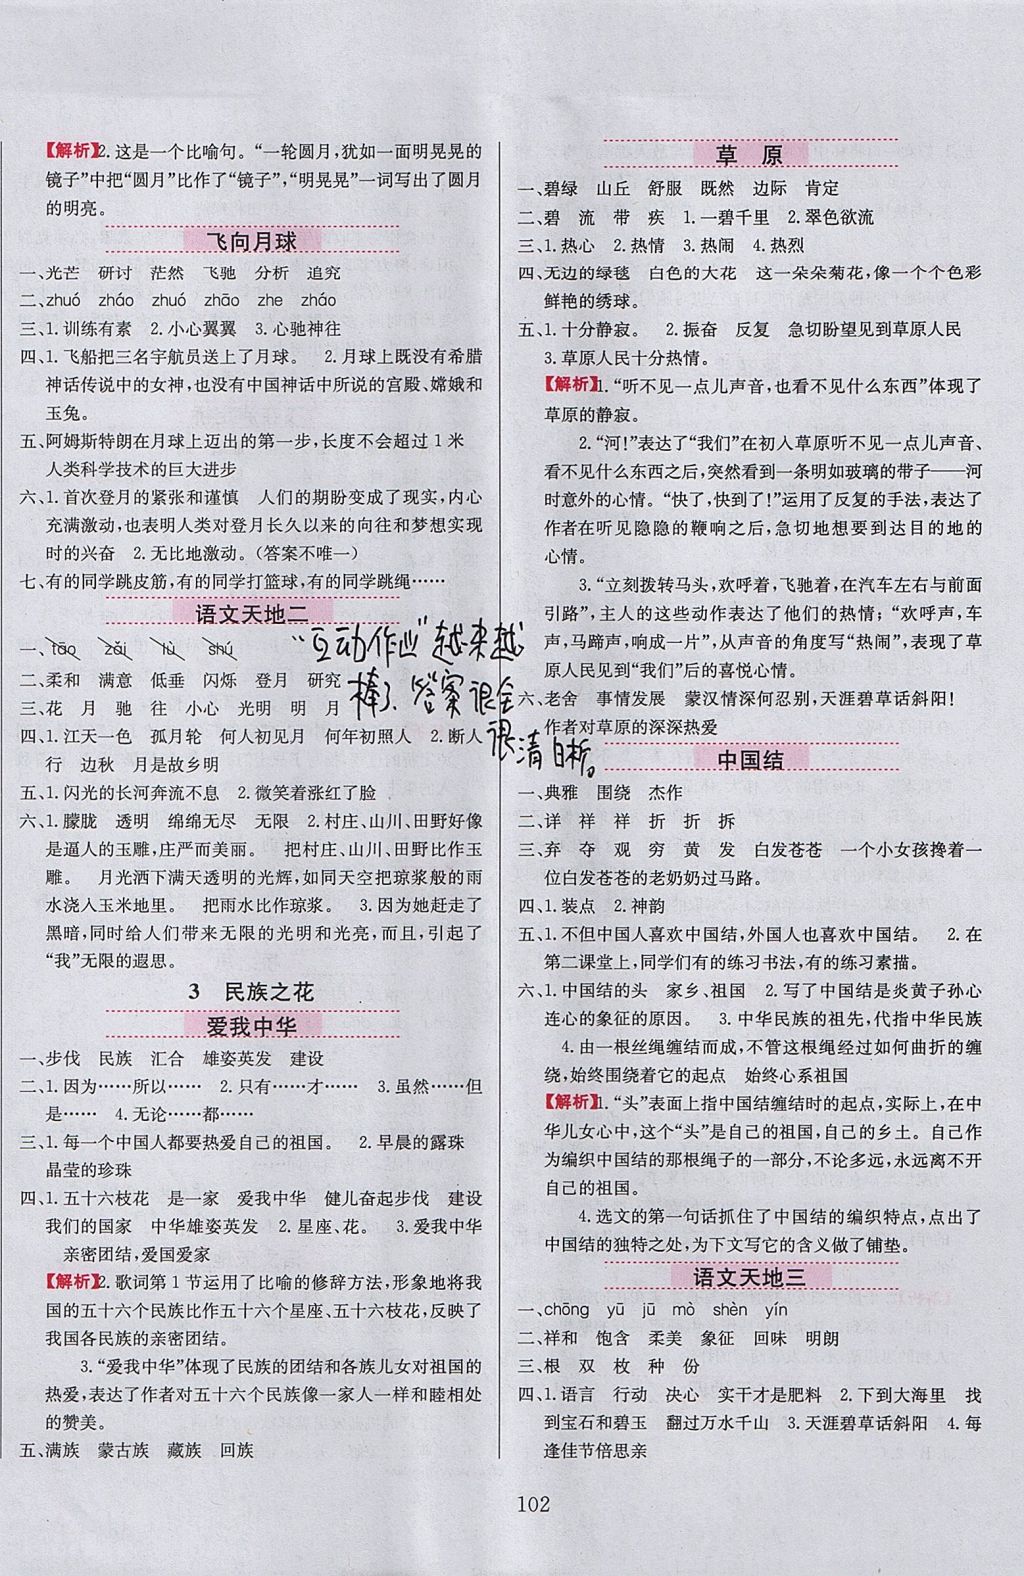 【解析】2.这是一个比喻句。“一轮圆月,犹如一面明晃晃的
镜子”中把“圆月”比作了“镜子”,“明晃晃”一词写出了圆月
的明亮。
飞向月球
一、光芒 研讨 茫然 飞驰 分析 追究
二、zhuó zháo zhuó zhāo zhe zháo
三、1.训练有素 2.小心翼翼 3.心驰神往
四、1.飞船把三名宇航员送上了月球。 2.月球上既没有希腊
神话传说中的女神,也没有中国神话中所说的宫殿、嫦娥和
玉兔。
五、阿姆斯特朗在月球上迈出的第一步,长度不会超过1米
人类科学技术的巨大进步
六、1.首次登月的紧张和谨慎 人们的期盼变成了现实,内心
充满激动,也表明人类对登月长久以来的向往和梦想实现
时的兴奋 2.无比地激动。(答案不唯一)
七、有的同学跳皮筋,有的同学打篮球,有的同学跳绳……
语文天地二
一、tāo zǎi lù shú
二、柔和 满意 低垂 闪烁 登月 研究
三、花 月 驰 往 小心 光明 明 月
四、1.江天一色 孤月轮 何人初见月 何年初照人 2.断人
行 边秋 月是故乡明
五、1.闪光的长河奔流不息 2.微笑着涨红了脸
六、1.朦胧 透明 绵绵无尽 无限 2.村庄、山川、田野好像
是逼人的玉雕,庄严而美丽。 把村庄、山川、田野比作玉
雕。 月光洒下满天透明的丝雨,如同天空把琼浆般的雨
水浇入玉米地里。 把雨水比作琼浆。 3.因为她赶走了
黑暗,同时给人们带来无限的光明和光亮,而且,引起了
“我”无限的遐思。
3 民族之花
爱我中华
一、步伐 民族 汇合 雄姿英发 建设
二、1.因为……所以…… 2.只有……才…… 3.虽然……但
是…… 4.无论……都……
三、1.每一个中国人都要热爱自己的祖国。 2.早晨的露珠
晶莹的珍珠
四、1.五十六枝花 是一家 爱我中华 健儿奋起步伐 建设
我们的国家 中华雄姿英发 2.星座、花。 3.爱我中华
亲密团结,爱国爱家
【解析】2.歌词第1节运用了比喻的修辞方法,形象地将我
国的五十六个民族比作五十六个星座、五十六枝花,反映了
我国各民族的亲密团结。
3.“爱我中华”体现了民族的团结和各族儿女对祖国的
热爱,表达了作者对五十六个民族像一家人一样和睦相处
的赞美。
五、满族 蒙古族 藏族 回族
“互动作业”越来越
棒了、答案很全
很清白析。
草 原
一、碧绿 山丘 舒服 既然 边际 肯定
二、碧 流 带 疾 1.一碧千里 2.翠色欲流
三、1.热心 2.热情 3.热闹 4.热烈
四、无边的绿毯 白色的大花 这一朵朵菊花,像一个个色彩
鲜艳的绣球。
五、1.十分静寂。 2.振奋 反复 急切盼望见到草原人民
3.草原人民十分热情。
【解析】1.“听不见一点儿声音,也看不见什么东西”体现了
草原的静寂。
2.“河!”表达了“我们”在初入草原听不见一点儿声音、
看不见什么东西之后,突然看到一条明如玻璃的带子——河
时意外的心情。“快了,快到了!”运用了反复的手法,表达了
作者在听见隐隐的鞭响之后,急切地想要到达目的地的
心情。
3.“立刻拨转马头,欢呼着,飞驰着,在汽车左右与前面
引路”,主人的这些动作表达了他们的热情;“欢呼声,车
声,马蹄声,响成一片”,从声音的角度写“热闹”,表现了草
原人民见到“我们”后的喜悦心情。
六、老舍 事情发展 蒙汉情深何忍别,天涯碧草话斜阳!
作者对草原的深深热爱
中国结
一、典雅 围绕 杰作
二、详 祥 祥 折 折 拆
三、弃 夺 观 穷 黄 发 白发苍苍 一个小女孩搀着一
位白发苍苍的老奶奶过马路。
四、1.装点 2.神韵
五、1.不但中国人喜欢中国结,外国人也喜欢中国结。 2.在
第二课堂上,同学们有的练习书法,有的练习素描。
六、1.中国结的头 家乡、祖国 2.写了中国结是炎黄子孙心
连心的象征的原因。 3.中华民族的祖先,代指中华民族
4.由一根丝绳缠结而成,不管这根绳经过多少曲折的缠
绕,始终围绕着它的起点 始终心系祖国
【解析】1.“头”表面上指中国结缠结时的起点,实际上,在中
华儿女心中,这个“头”是自己的祖国,自己的乡土。自己作
为编织中国结的那根绳子的一部分,不论多远,永远离不开
自己的祖国。
4.选文的第一句话抓住了中国结的编织特点,点出了
中国结的独特之处,为下文写它的含义做了铺垫。
语文天地三
一、chōng yū jū mò shèn yín
二、祥和 饱含 柔美 象征 回味 明朗
三、根 双 枚 种 份
四、1.语言 行动 决心 实干才是肥料 2.下到大海里 找
到宝石和碧玉 翻过万水千山 3.天涯碧草话斜阳 4.每
逢佳节倍思亲
102